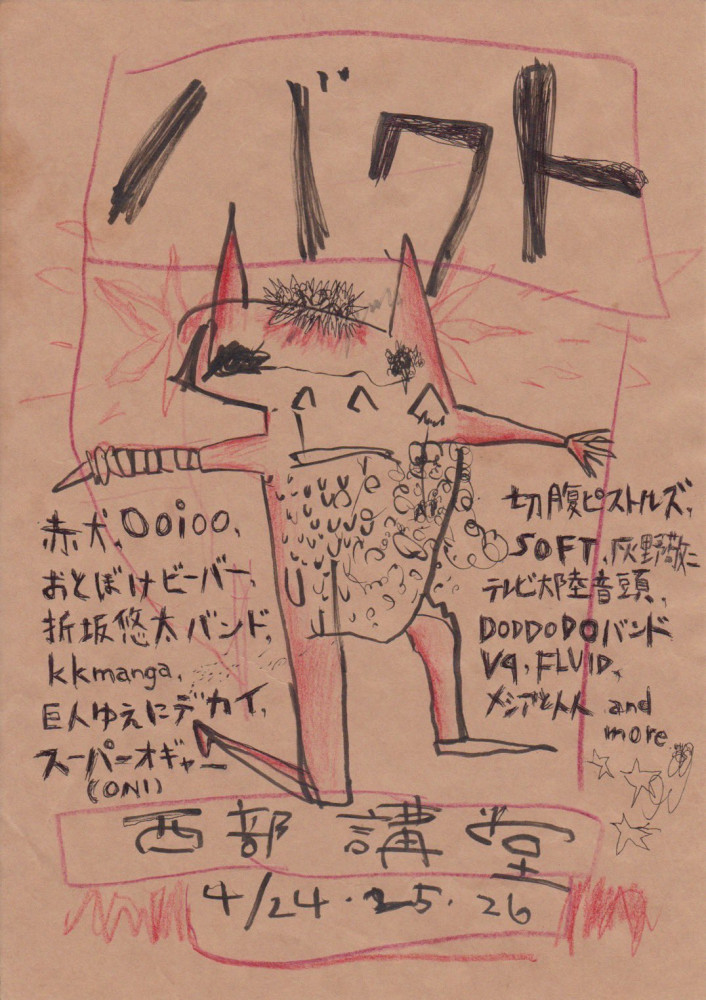 バクト
赤犬、OOiOO、
おとぼけビ~バー、
折坂悠太バンド、
kkmanga、
巨人ゆえにデカイ、
スーパーオギャー
(ONI)
切腹ピストルズ、
SOFT、灰野敬二
テレビ大陸音頭、
DODDODOバンド
V9, FLUID、
メシアと人人 and
more
西部講堂
4/24・25・26